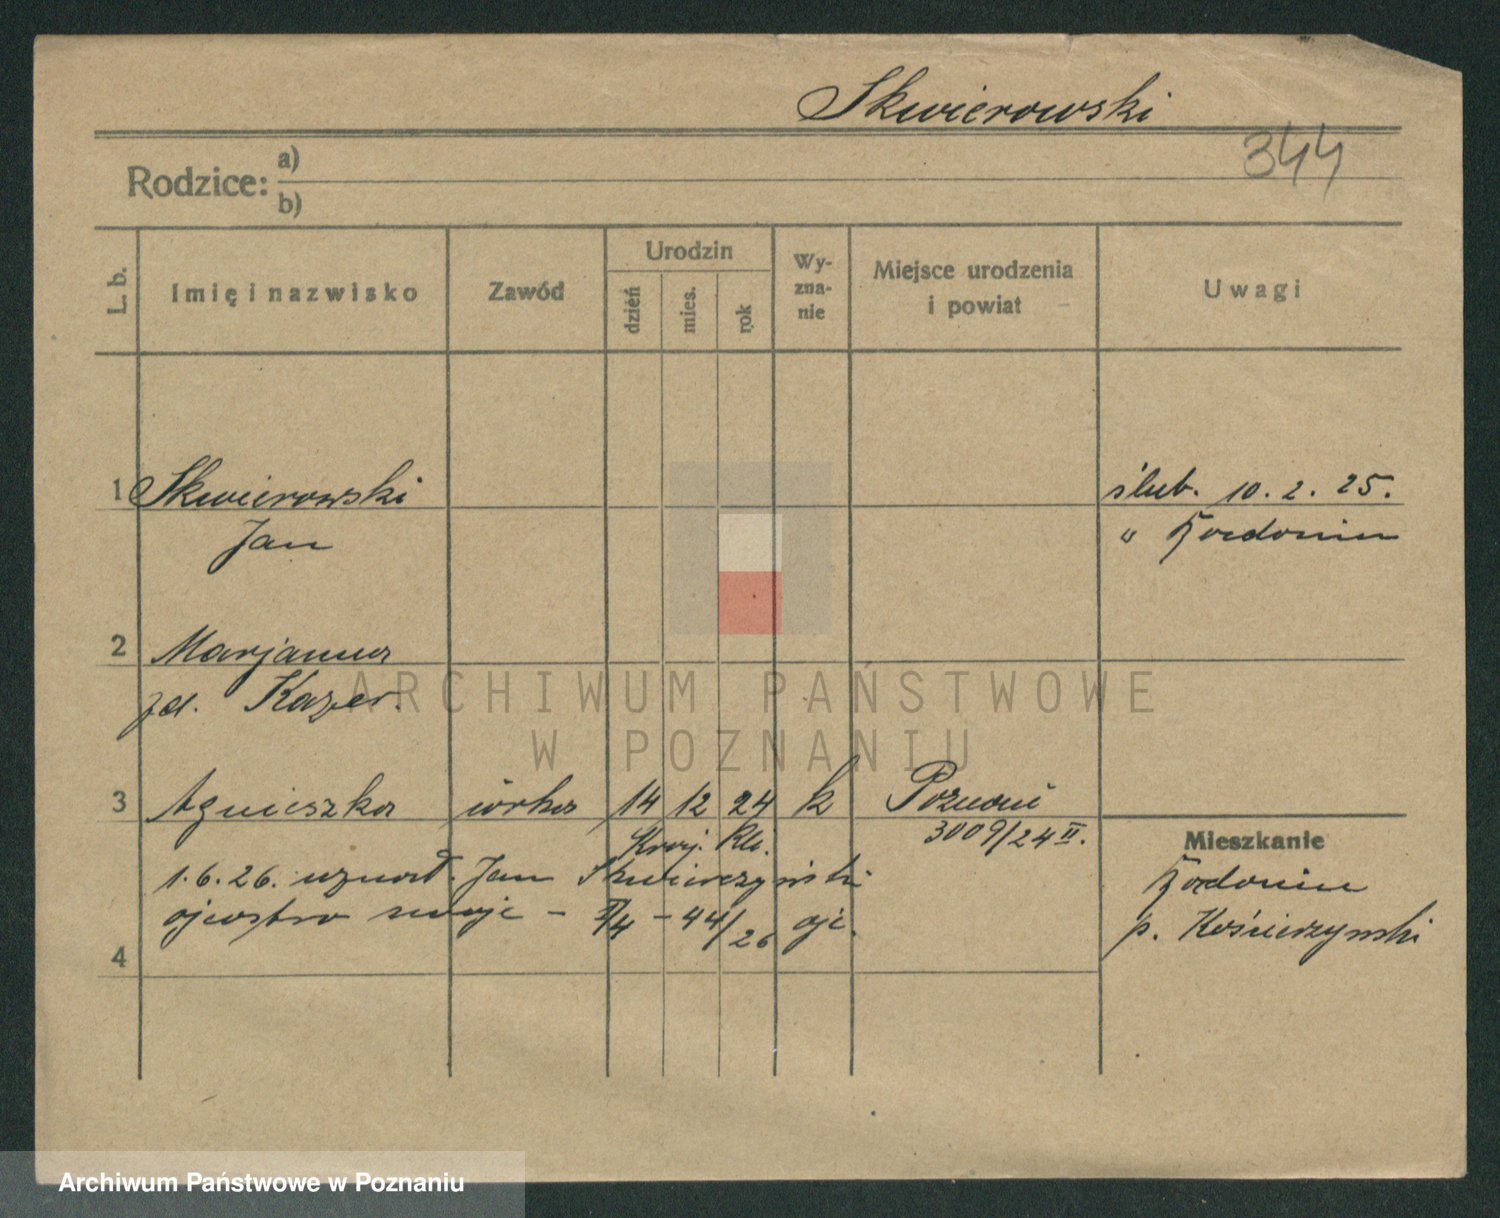 Skwierowski
344
Rodzice: a)
b)
L. b.
Imię i nazwisko
Zawód
Urodzin
dzień
mies.
rok
Wy-
zna-
nie
Miejsce urodzenia
i powiat
Uwagi
1 Skwierowski
Jan
ślub. 10. 2. 25.
" Kordonin
2 Marjanna
zd. Kazer.
3 Agnieszka córka 14 12 24 k Poznań
Kraj. Kli. 3009/24 II.
1. 6. 26. uznał. Jan
ojcostwo swoje - - 44/26 ojc.
4
Mieszkanie
Kordonin
p. Kościerzyński
ARCHIWUM PAŃSTWOWE
W POZNANIU
Archiwum Państwowe w Poznaniu